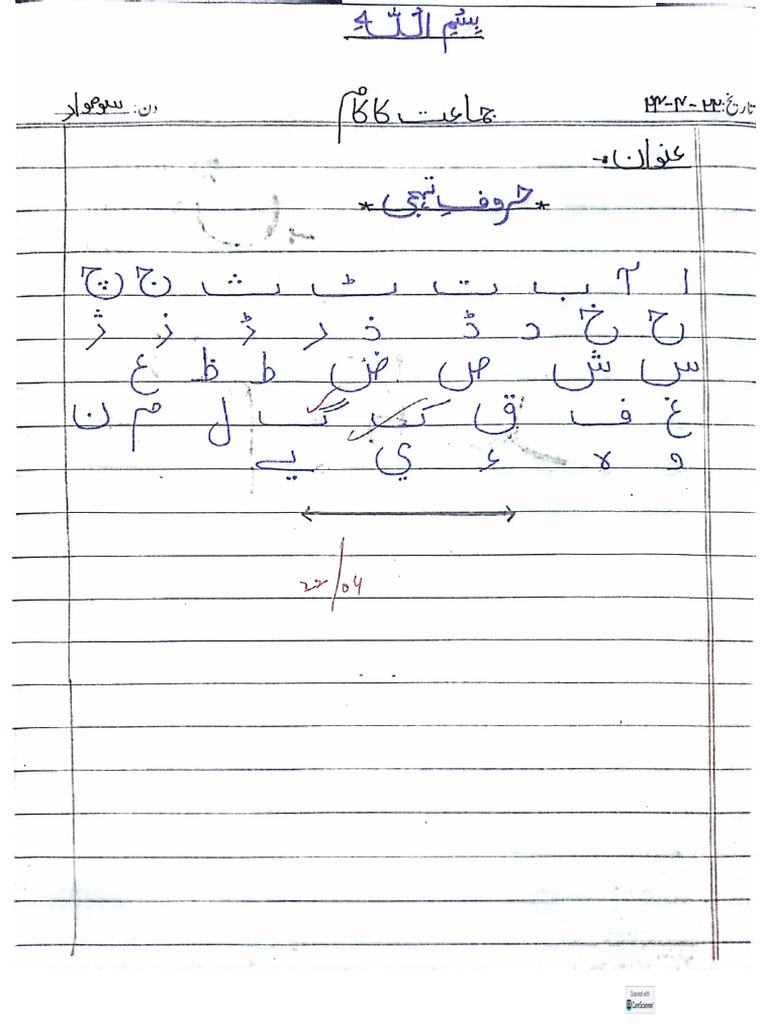 بِسْمِ اللّٰہ
تاریخ: ۲۲-۴-۲۴ جماعت کا کام دن: سوموار
عنوان:-
*حروفِ تہجی*
ا آ ب ت ٹ ث ج چ
ح خ د ڈ ذ ر ڑ ز ژ
س ش ص ض ط ظ ع
غ ف ق ک گ ل م ن
و ہ ء ي ے
22/04
Scanned with
CamScanner